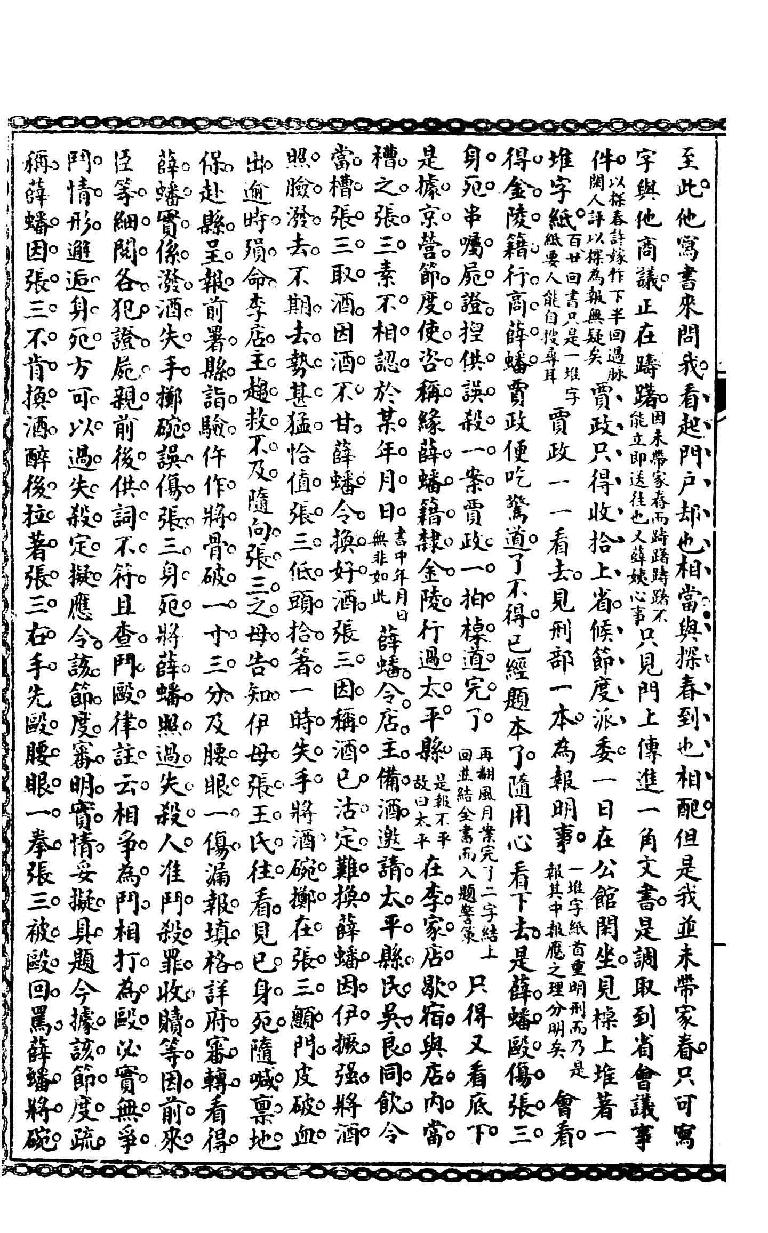 至此他寫書來問我看起門戶却也相當與探春到也相配但是我並未帶家眷只可寫
字與他商議正在躊躇因未帶家眷而躊躇躊躇不能立即送往也又薛姨心事只見門上傳進一角文書是調取到省會議事
件以探春許嫁作下半回過脉閱人評以探為報無疑矣賈政只得收拾上省候節度派委一日在公館閑坐見棹上堆著一
堆字紙百廿回書只是一堆字紙要人能自搜尋耳賈政一一看去見刑部一本為報明事一堆字紙首重明刑而乃是報其中報應之理分明矣會看
得金陵籍行商薛蟠賈政便吃驚道了不得已經題本了隨用心看下去是薛蟠毆傷張三
身死串囑屍證捏供誤殺一案賈政一拍棹道完了再翻風月業完了二字結上回並結全書而入題警策只得又看底下
是據京營節度使咨稱緣薛蟠籍隸金陵行過太平縣是報不平故曰太平在李家店歇宿與店內當
槽之張三素不相認於某年月日書中年月日無非如此薛蟠令店主備酒邀請太平縣民吳良同飲令
當槽張三取酒因酒不甘薛蟠令換好酒張三因稱酒已沽定難換薛蟠因伊撅强將酒
照臉潑去不期去勢甚猛恰值張三低頭拾箸一時失手將酒碗擲在張三顖門皮破血
出逾時殞命李店主趨救不及隨向張三之母告知伊母張王氏往看見已身死隨喊稟地
保赴縣呈報前署縣詣驗仵作將骨破一寸三分及腰眼一傷漏報填格詳府審轉看得
薛蟠實係潑酒失手擲碗誤傷張三身死將薛蟠照過失殺人准鬥殺罪收贖等因前來
臣等細閱各犯證屍親前後供詞不符且查鬥毆律註云相爭為鬥相打為毆必實無爭
鬥情形邂逅身死方可以過失殺定擬應令該節度審明實情妥擬具題今據該節度疏
稱薛蟠因張三不肯換酒醉後拉著張三右手先毆腰眼一拳張三被毆回罵薛蟠將碗